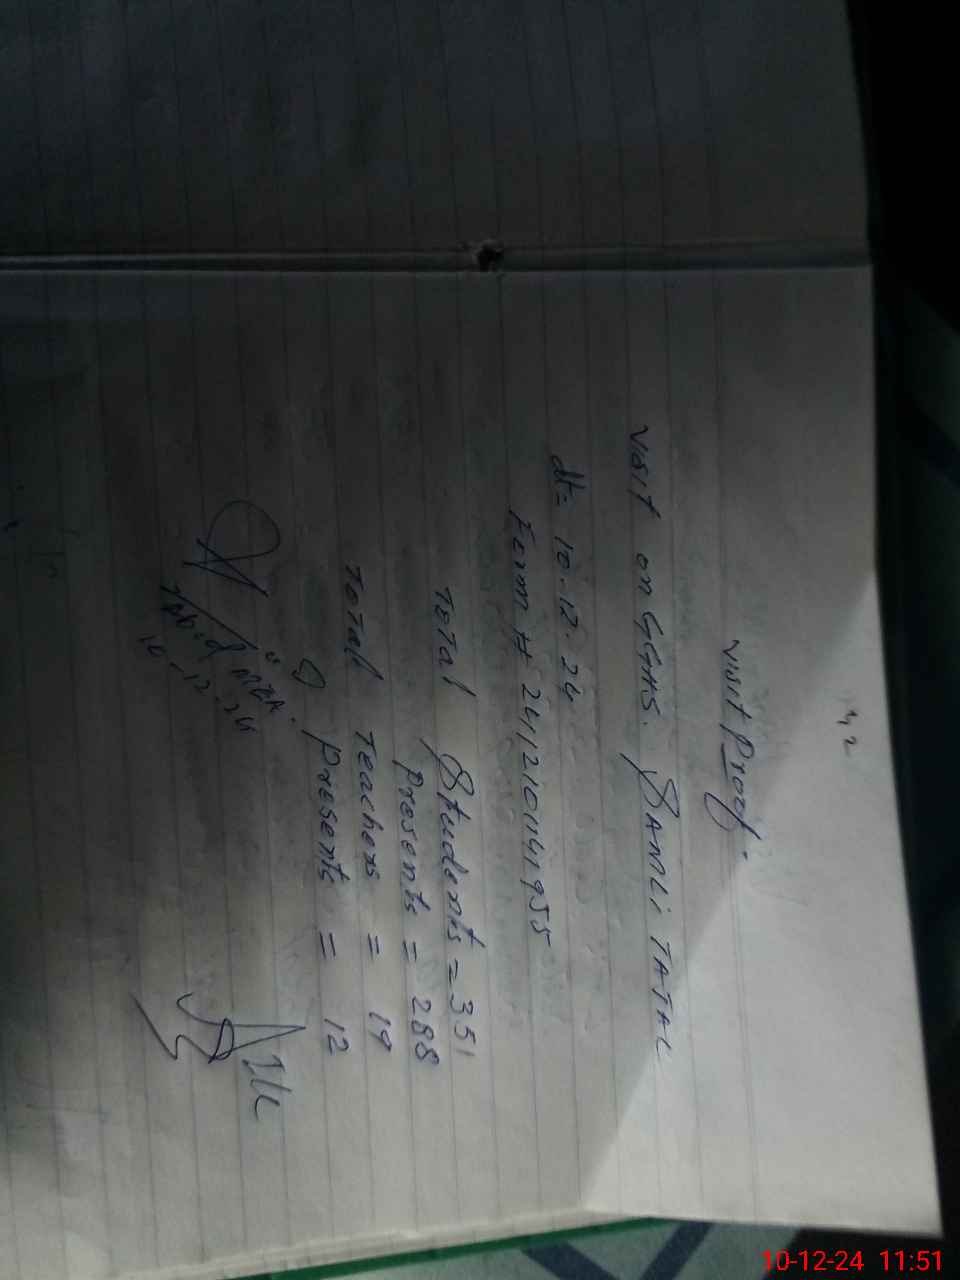 42
Visit Proof.
Visit on GGHS. SANLi TATAL
dt = 10.12.24
Form # 241210141955
Total Students = 351
Presents = 288
Total Teachers = 19
Presents = 12
Abid MEA.
10-12-24
10-12-24 11:51